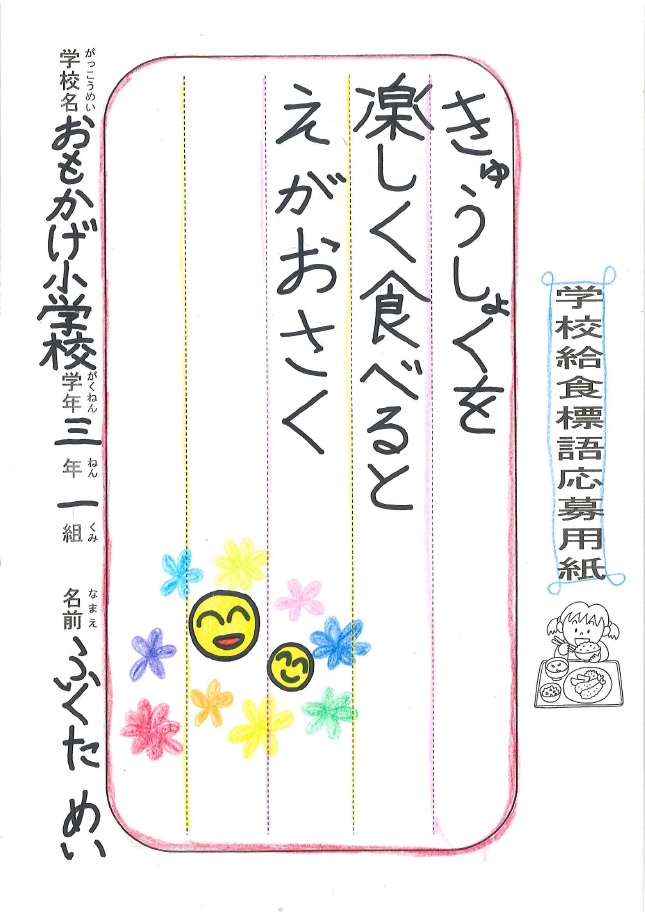 学校給食標語応募用紙
きゅうしょくを
楽しく食べると
えがおさく
学校名 おもかげ小学校 学年 三年 一組 名前 ふくた めい
がっこうめい がくねん ねん くみ なまえ